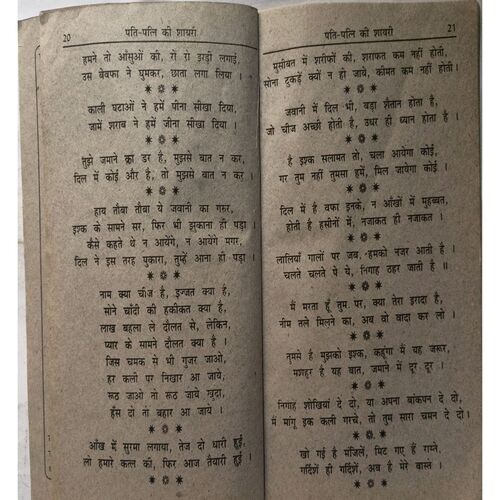 20 पति-पत्नि की शायरी
हमने तो आँसुओं की, रो रो झड़ी लगाई,
उस बेवफा ने घुमकर, छाता लगा लिया ।
काली घटाओं ने हमें पीना सीखा दिया,
जामें शराब ने हमें जीना सीखा दिया ।
तुझे जमाने का डर है, मुझसे बात न कर,
दिल में कोई और है, तो मुझसे बात न कर ।
हाय तौबा तौबा ये जवानी का गरूर,
इश्क के सामने सर, फिर भी झुकाना ही पड़ा ।
कैसे कहते थे न आयेंगे, न आयेंगे मगर,
दिल ने इस तरह पुकारा, तुम्हें आना ही पड़ा ।
नाम क्या चीज है, इज्जत क्या है,
सोने चांदी की हकीकत क्या है,
लाख बहला ले दौलत से, लेकिन,
प्यार के सामने दौलत क्या है ।
जिस चमक से भी गुजर जाओ,
हर कली पर निखार आ जाये,
रूठ जाओ तो रूठ जाये खुदा,
हँस दो तो बहार आ जाये ।
आँख में सुरमा लगाया, तेज दो धारी हुई,
लो हमारे कत्ल की, फिर आज तैयारी हुई ।
पति-पत्नि की शायरी 21
मुसीबत में शरीफों की, शराफत कम नहीं होती,
सोना टुकड़े क्यों न ही जाये, कीमत कम नहीं होती ।
जवानी में दिल भी, बड़ा शैतान होता है,
जो चीज अच्छी होती है, उधर ही ध्यान होता है ।
है इश्क सलामत तो, चला आयेगा कोई,
गर तुम नहीं तुमसा हमें, मिल जायेगा कोई ।
दिल में है वफा इनके, न आँखों में मुहब्बत,
होती है हसीनों में, नजाकत ही नजाकत ।
लालियाँ गालों पर जब, हमको नजर आती है ।
चलते चलते पे ये, निगाह ठहर जाती है ॥
मैं मरता हूँ तुम पर, क्या तेरा इरादा है,
नीम तले मिलने का, अब वो वादा कर लो ।
तुमसे है मुझको इश्क, कहूंगा मैं यह जरूर,
मशहूर है यह बात, जमाने में दूर दूर ।
निगाहं शोखियां दे दो, या अपना बांकपन दे दो,
मैं मांगू इक कली गरचे, तो तुम सारा चमन दे दो ।
खो गई है मंजिलें, मिट गए हैं रास्ते,
गर्दिशें ही गर्दिशें, अब है मेरे वास्ते ।